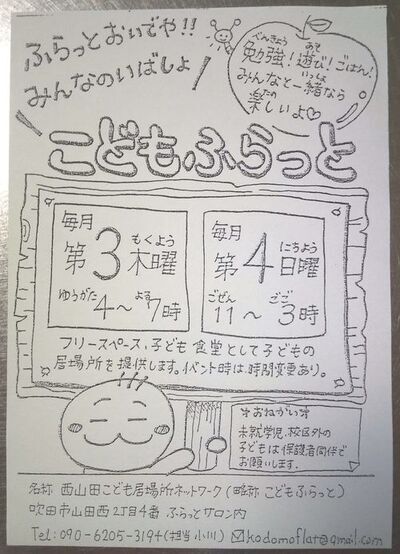 ふらっとおいでや!!
みんなのいばしょ
べんきょう あそ
勉強!遊び!ごはん!
いっしょ
みんなと一緒なら
たの
楽しいよ♡
こどもふらっと
毎月
もくよう
第3木曜
ゆうがた よる
4〜7時
毎月
にちよう
第4日曜
ごぜん ごご
11〜3時
フリースペース、子ども食堂として子どもの
居場所を提供します。イベント時は、時間変更あり。
オおねがいオ
未就学児、校区外の
子どもは保護者同伴で
お願いします。
名称 西山田こども居場所ネットワーク(略称 こどもふらっと)
吹田市山田西2丁目4番 ふらっとサロン内
Tel: 090-6205-3194(担当 小川) ✉kodomoflat@gmail.com